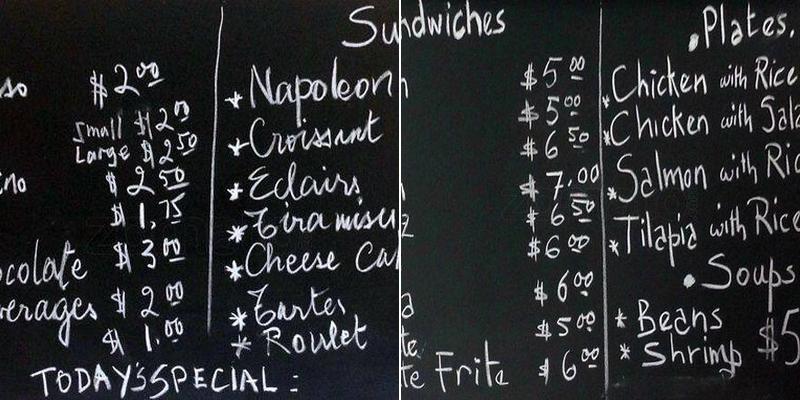 Sandwiches
$2.00
Small $2.00
Large $2.50
$2.50
$1.75
$3.00
$2.00
$1.00
* Napoleon
* Croissant
* Eclairs
* Tiramisu
* Cheese Ca
* Tartes
* Roulet
TODAY'S SPECIAL:
$5.00
$5.00
$6.50
$7.00
$6.50
$6.00
$6.00
$5.00
te Frite $6.00
• Plates.
* Chicken with Rice
* Chicken with Sala
* Salmon with Ric
* Tilapia with Rice
• Soups
* Beans
* Shrimp $5